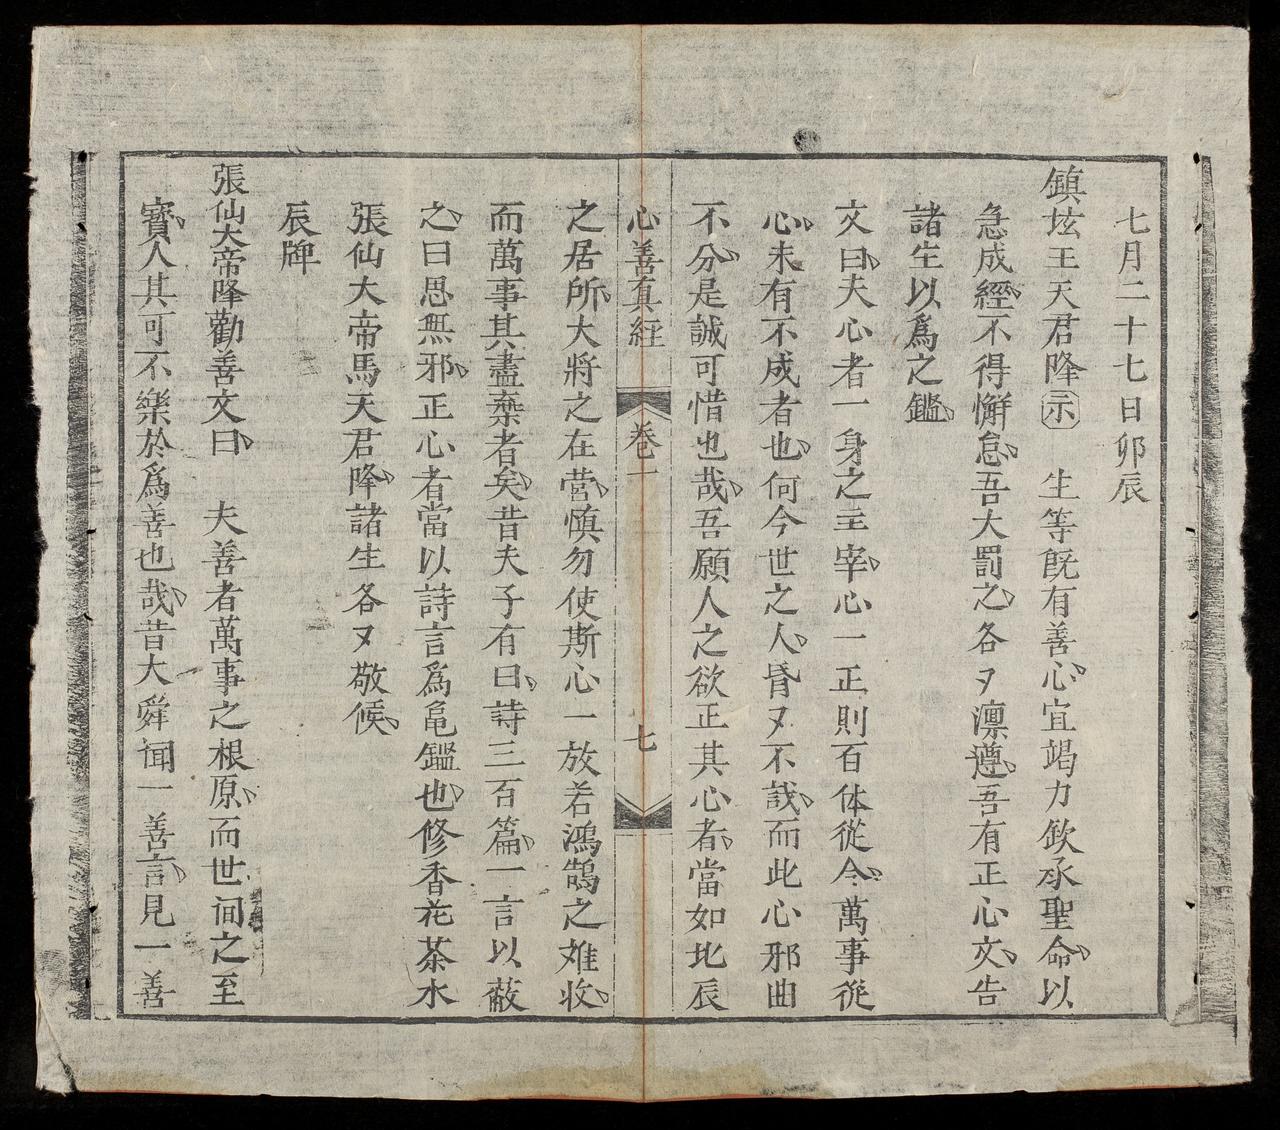 七月二十七日卯辰
鎮坛王天君降示　生等既有善心宜竭力欽承聖命以
急成經不得懈怠吾大罰之各又凛遵吾有正心文告
諸生以爲之鑑
文曰夫心者一身之主宰心一正則百体從令萬事從
心未有不成者也何今世之人昏又不誐而此心邪曲
不分是誠可惜也哉吾願人之欲正其心者當如北辰
心善真經　卷一　七
之居所大將之在營慎勿使斯心一放若鴻鵠之难收
而萬事其盡棄者矣昔夫子有曰詩三百篇一言以蔽
之曰思無邪正心者當以詩言爲亀鑑也修香花茶水
張仙大帝馬天君降諸生各又敬候
辰牌
張仙大帝降勸善文曰　夫善者萬事之根原而世间之至
寳人其可不樂於爲善也哉昔大舜闻一善言見一善